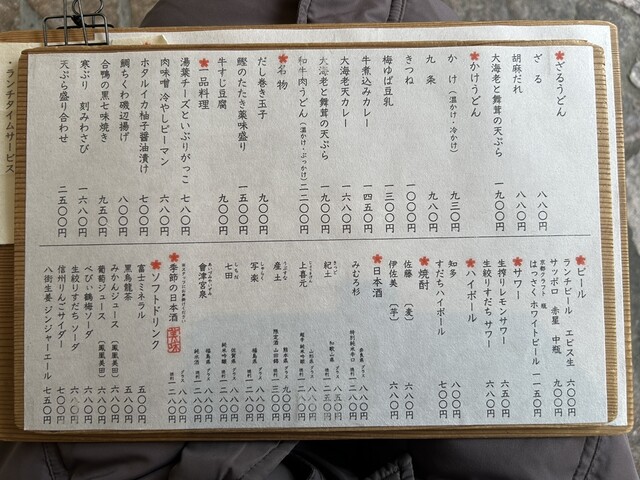 ざるうどん
ざる 八八〇円
胡麻だれ 八八〇円
大海老と舞茸の天ぷら 一九〇〇円
かけうどん
かけ(温かけ・冷かけ) 九三〇円
九条 九八〇円
きつね 一〇〇〇円
梅ゆば豆乳 一三〇〇円
牛煮込みカレー 一四五〇円
大海老天カレー 一六八〇円
大海老と舞茸の天ぷら 一九〇〇円
和牛肉うどん(温かけ・ぶっかけ) 二二〇〇円
名物
だし巻き玉子 九〇〇円
鰹のたたき薬味盛り 一五〇〇円
牛すじ豆腐 九〇〇円
一品料理
湯葉チーズといぶりがっこ 七八〇円
肉味噌 冷やしピーマン 六八〇円
ホタルイカ柚子醤油漬け 七〇〇円
鯛ちくわ磯辺揚げ 八〇〇円
合鴨の黒七味焼き 九五〇円
寒ぶり 刻みわさび 一六八〇円
天ぷら盛り合わせ 二五〇〇円
ビール
ランチビール ヱビス生 六〇〇円
サッポロ 赤星 中瓶 九〇〇円
京都クラフト 瓶
はっさくホワイトビール 一一五〇円
サワー
生搾りレモンサワー 六五〇円
生絞りすだちサワー 六八〇円
ハイボール
知多 八〇〇円
すだちハイボール 七〇〇円
焼酎
佐藤 (麦) 六八〇円
伊佐美 (芋) 六八〇円
日本酒
みむろ杉
紀土 和歌山県
上喜元 山形県
産土 熊本県
写楽 福島県
七田 佐賀県
會津宮泉 福島県
季節の日本酒
ソフトドリンク
富士ミネラル 五〇〇円
黒烏龍茶 五五〇円
みかんジュース (鳳凰美田) 六八〇円
葡萄ジュース (鳳凰美田) 六八〇円
べびぃ鶴梅ソーダ 六八〇円
生絞りすだちソーダ 六八〇円
信州りんごサイダー 七〇〇円
八街生姜 ジンジャーエール 七五〇円
・ランチタイムサービス